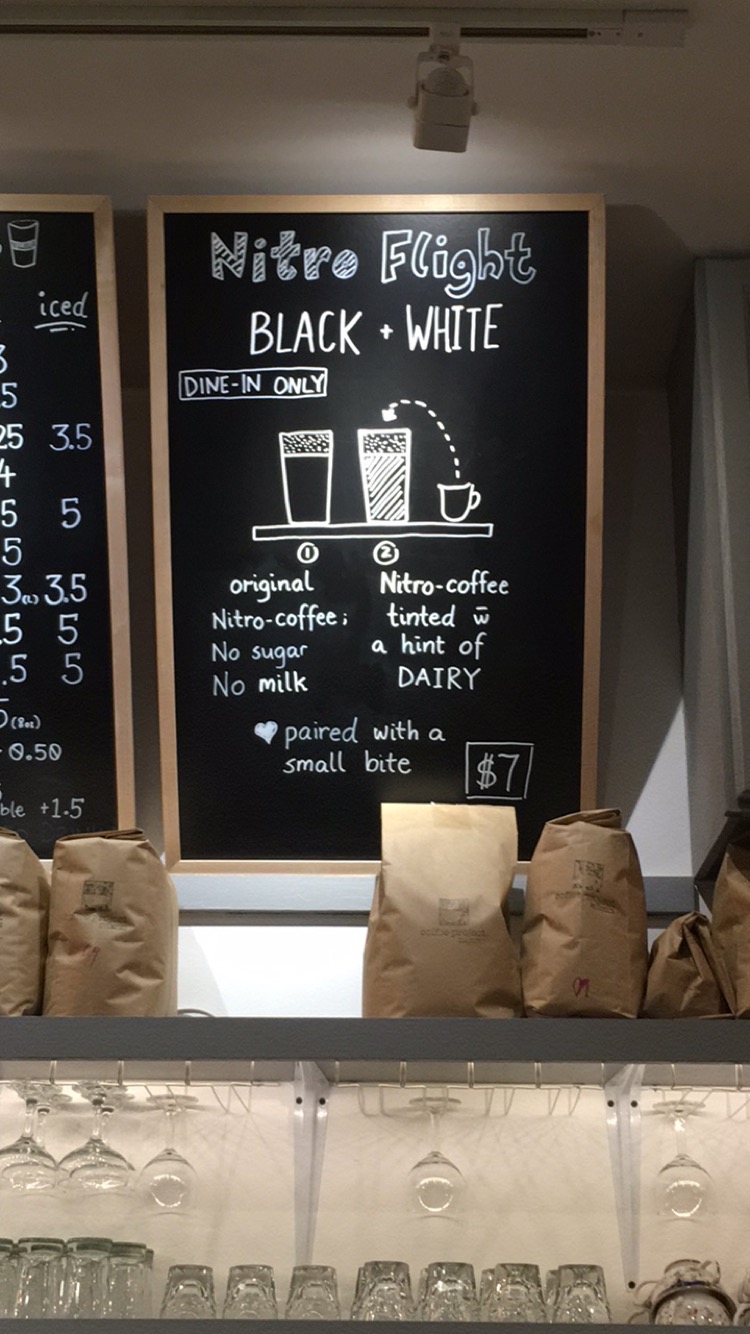 iced
3
.5
25 3.5
4
.5 5
.5
3(s.) 3.5
.5 5
.5 5
5(8oz)
0.50
ble +1.5
Nitro Flight
BLACK + WHITE
DINE-IN ONLY
1 2
original Nitro-coffee
Nitro-coffee; tinted w̄
No sugar a hint of
No milk DAIRY
paired with a
small bite
$7